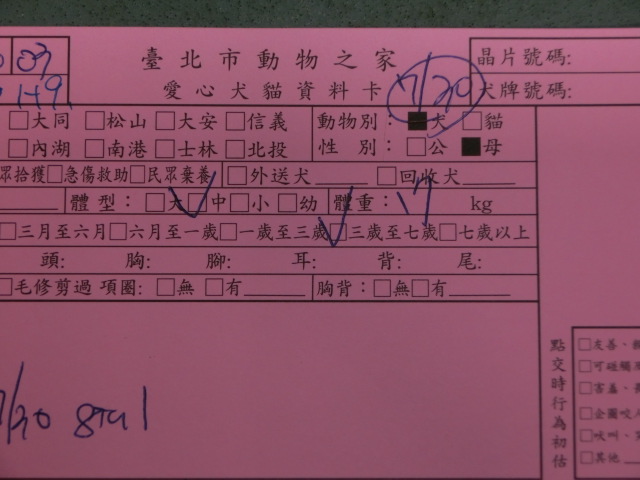 03 臺北市動物之家 晶片號碼:
149 愛心犬貓資料卡 7/20 犬牌號碼:
□大同 □松山 □大安 □信義 動物別: ■犬 □貓
□內湖 □南港 □士林 □北投 性別: □公 ■母
眾拾獲□急傷救助□民眾棄養 □外送犬 □回收犬
體型: □大□中□小□幼 體重: 17 kg
□三月至六月□六月至一歲□一歲至三歲□三歲至七歲□七歲以上
頭: 胸: 腳: 耳: 背: 尾:
□毛修剪過 項圈: □無 □有 胸背: □無□有
點交時行為初估
□友善、
□可碰觸
□害羞、
□企圖咬
□吠叫、
□其他
7/20